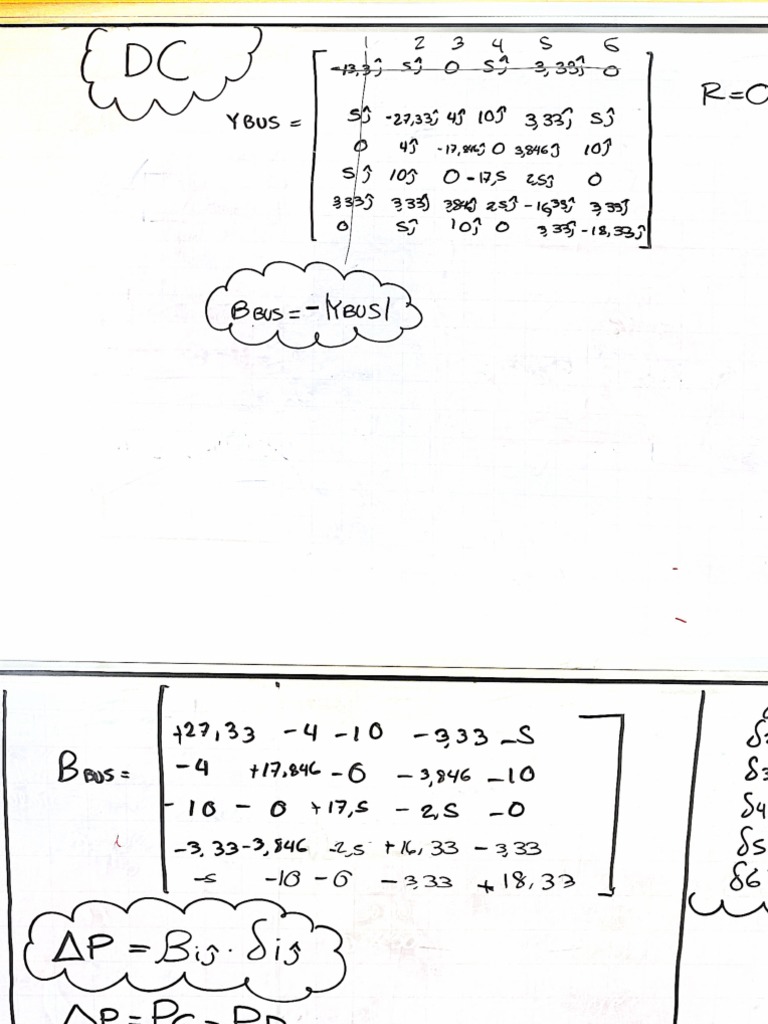 DC
1 2 3 4 5 6
-13,3j 5j 0 5j 3,33j 0
R=0
YBUS =
5j -27,33j 4j 10j 3,33j 5j
0 4j -17,846j 0 3,846j 10j
5j 10j 0 -17,5 2,5j 0
3,33j 3,33j 3,846j 2,5j -16,33j 3,33j
0 5j 10j 0 3,33j -18,33j
BBUS = -|YBUS|
BBUS =
+27,33 -4 -10 -3,33 -5
-4 +17,846 -0 -3,846 -10
-10 -0 +17,5 -2,5 -0
-3,33 -3,846 -2,5 +16,33 -3,33
-5 -10 -0 -3,33 +18,33
δ3
δ4
δ5
δ6
ΔP = Bij · δij
ΔP = PG - PD